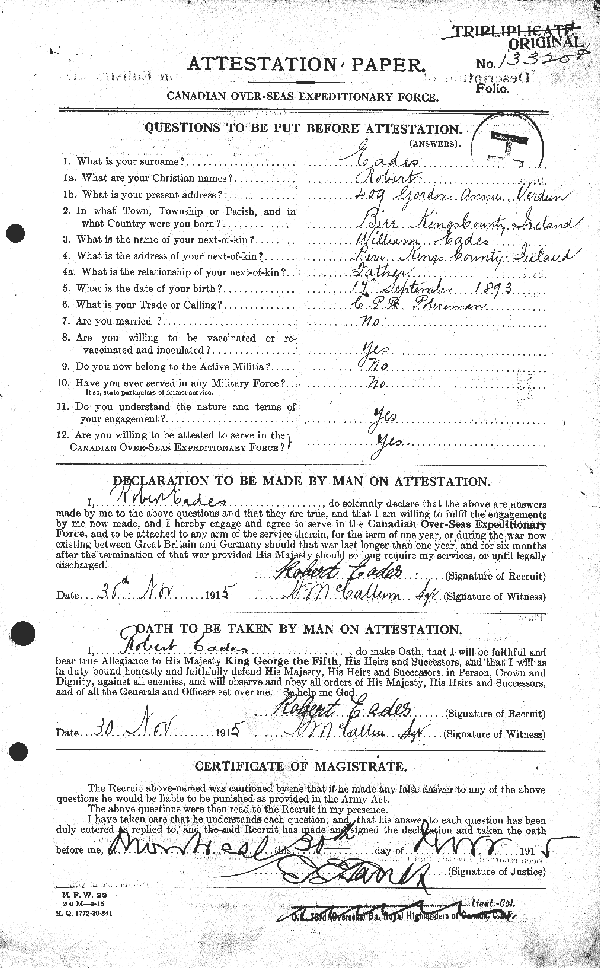 TRIPLIPLICATE
ORIGINAL
ATTESTATION PAPER.
No. 133208
Folio.
CANADIAN OVER-SEAS EXPEDITIONARY FORCE.
QUESTIONS TO BE PUT BEFORE ATTESTATION.
(ANSWERS).
1. What is your surname? Eades
1a. What are your Christian names? Robert
1b. What is your present address? 409 Gordon Avenue Verdun
2. In what Town, Township or Parish, and in
what Country were you born? Birr Kings County Ireland
3. What is the name of your next-of-kin? William Eades
4. What is the address of your next-of-kin? Birr Kings County Ireland
4a. What is the relationship of your next-of-kin? Father
5. What is the date of your birth? 17th September 1893
6. What is your Trade or Calling? C P R
7. Are you married? No
8. Are you willing to be vaccinated or re-
vaccinated and inoculated? Yes
9. Do you now belong to the Active Militia? No
10. Have you ever served in any Military Force? No
If so, state particulars of former service.
11. Do you understand the nature and terms of
your engagement? Yes
12. Are you willing to be attested to serve in the
CANADIAN OVER-SEAS EXPEDITIONARY FORCE? Yes
DECLARATION TO BE MADE BY MAN ON ATTESTATION.
I, Robert Eades, do solemnly declare that the above are answers
made by me to the above questions and that they are true, and that I am willing to fulfil the engagements
by me now made, and I hereby engage and agree to serve in the Canadian Over-Seas Expeditionary
Force, and to be attached to any arm of the service therein, for the term of one year, or during the war now
existing between Great Britain and Germany should that war last longer than one year, and for six months
after the termination of that war provided His Majesty should so long require my services, or until legally
discharged.
Robert Eades (Signature of Recruit)
Date 30th Nov 1915 N McCallum Sgt (Signature of Witness)
OATH TO BE TAKEN BY MAN ON ATTESTATION.
I, Robert Eades, do make Oath, that I will be faithful and
bear true Allegiance to His Majesty King George the Fifth, His Heirs and Successors, and that I will as
in duty bound honestly and faithfully defend His Majesty, His Heirs and Successors, in Person, Crown and
Dignity, against all enemies, and will observe and obey all orders of His Majesty, His Heirs and Successors,
and of all the Generals and Officers set over me. So help me God.
Robert Eades (Signature of Recruit)
Date 30 Nov 1915 N McCallum Sgt (Signature of Witness)
CERTIFICATE OF MAGISTRATE.
The Recruit above-named was cautioned by me that if he made any false answer to any of the above
questions he would be liable to be punished as provided in the Army Act.
The above questions were then read to the Recruit in my presence.
I have taken care that he understands each question, and that his answer to each question has been
duly entered as replied to, and the said Recruit has made and signed the declaration and taken the oath
before me, at Montreal this 30th day of Nov 1915
(Signature of Justice)
M. F. W. 23
H. Q. 1772-39-841
Lieut-Col.
O.C. 73rd (Overseas) Bn. Royal Highlanders of Canada, C.E.F.